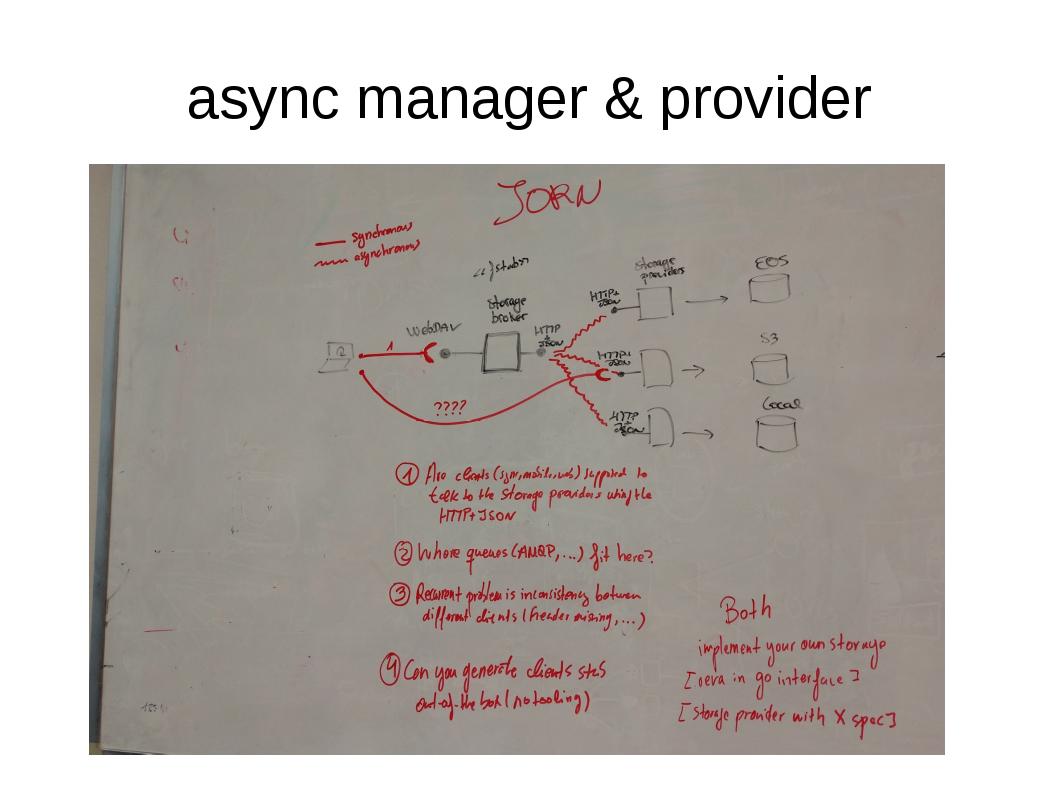 async manager & provider
JORN
synchronous
asynchronous
Storage
broker
WebDAV
1
HTTP
+
JSON
Storage
providers
HTTP+
JSON
HTTP+
JSON
HTTP
JSON
EOS
S3
Local
????
① Are clients (sync, mobile, web) supposed to
talk to the storage providers using the
HTTP+JSON
② Where queues (AMQP, ...) fit here?
③ Recurrent problem is inconsistency between
different clients (header missing, ...)
④ Can you generate clients
out-of-the box (no tooling)
Both
implement your own storage
[reva in go interface]
[Storage provider with X spec]